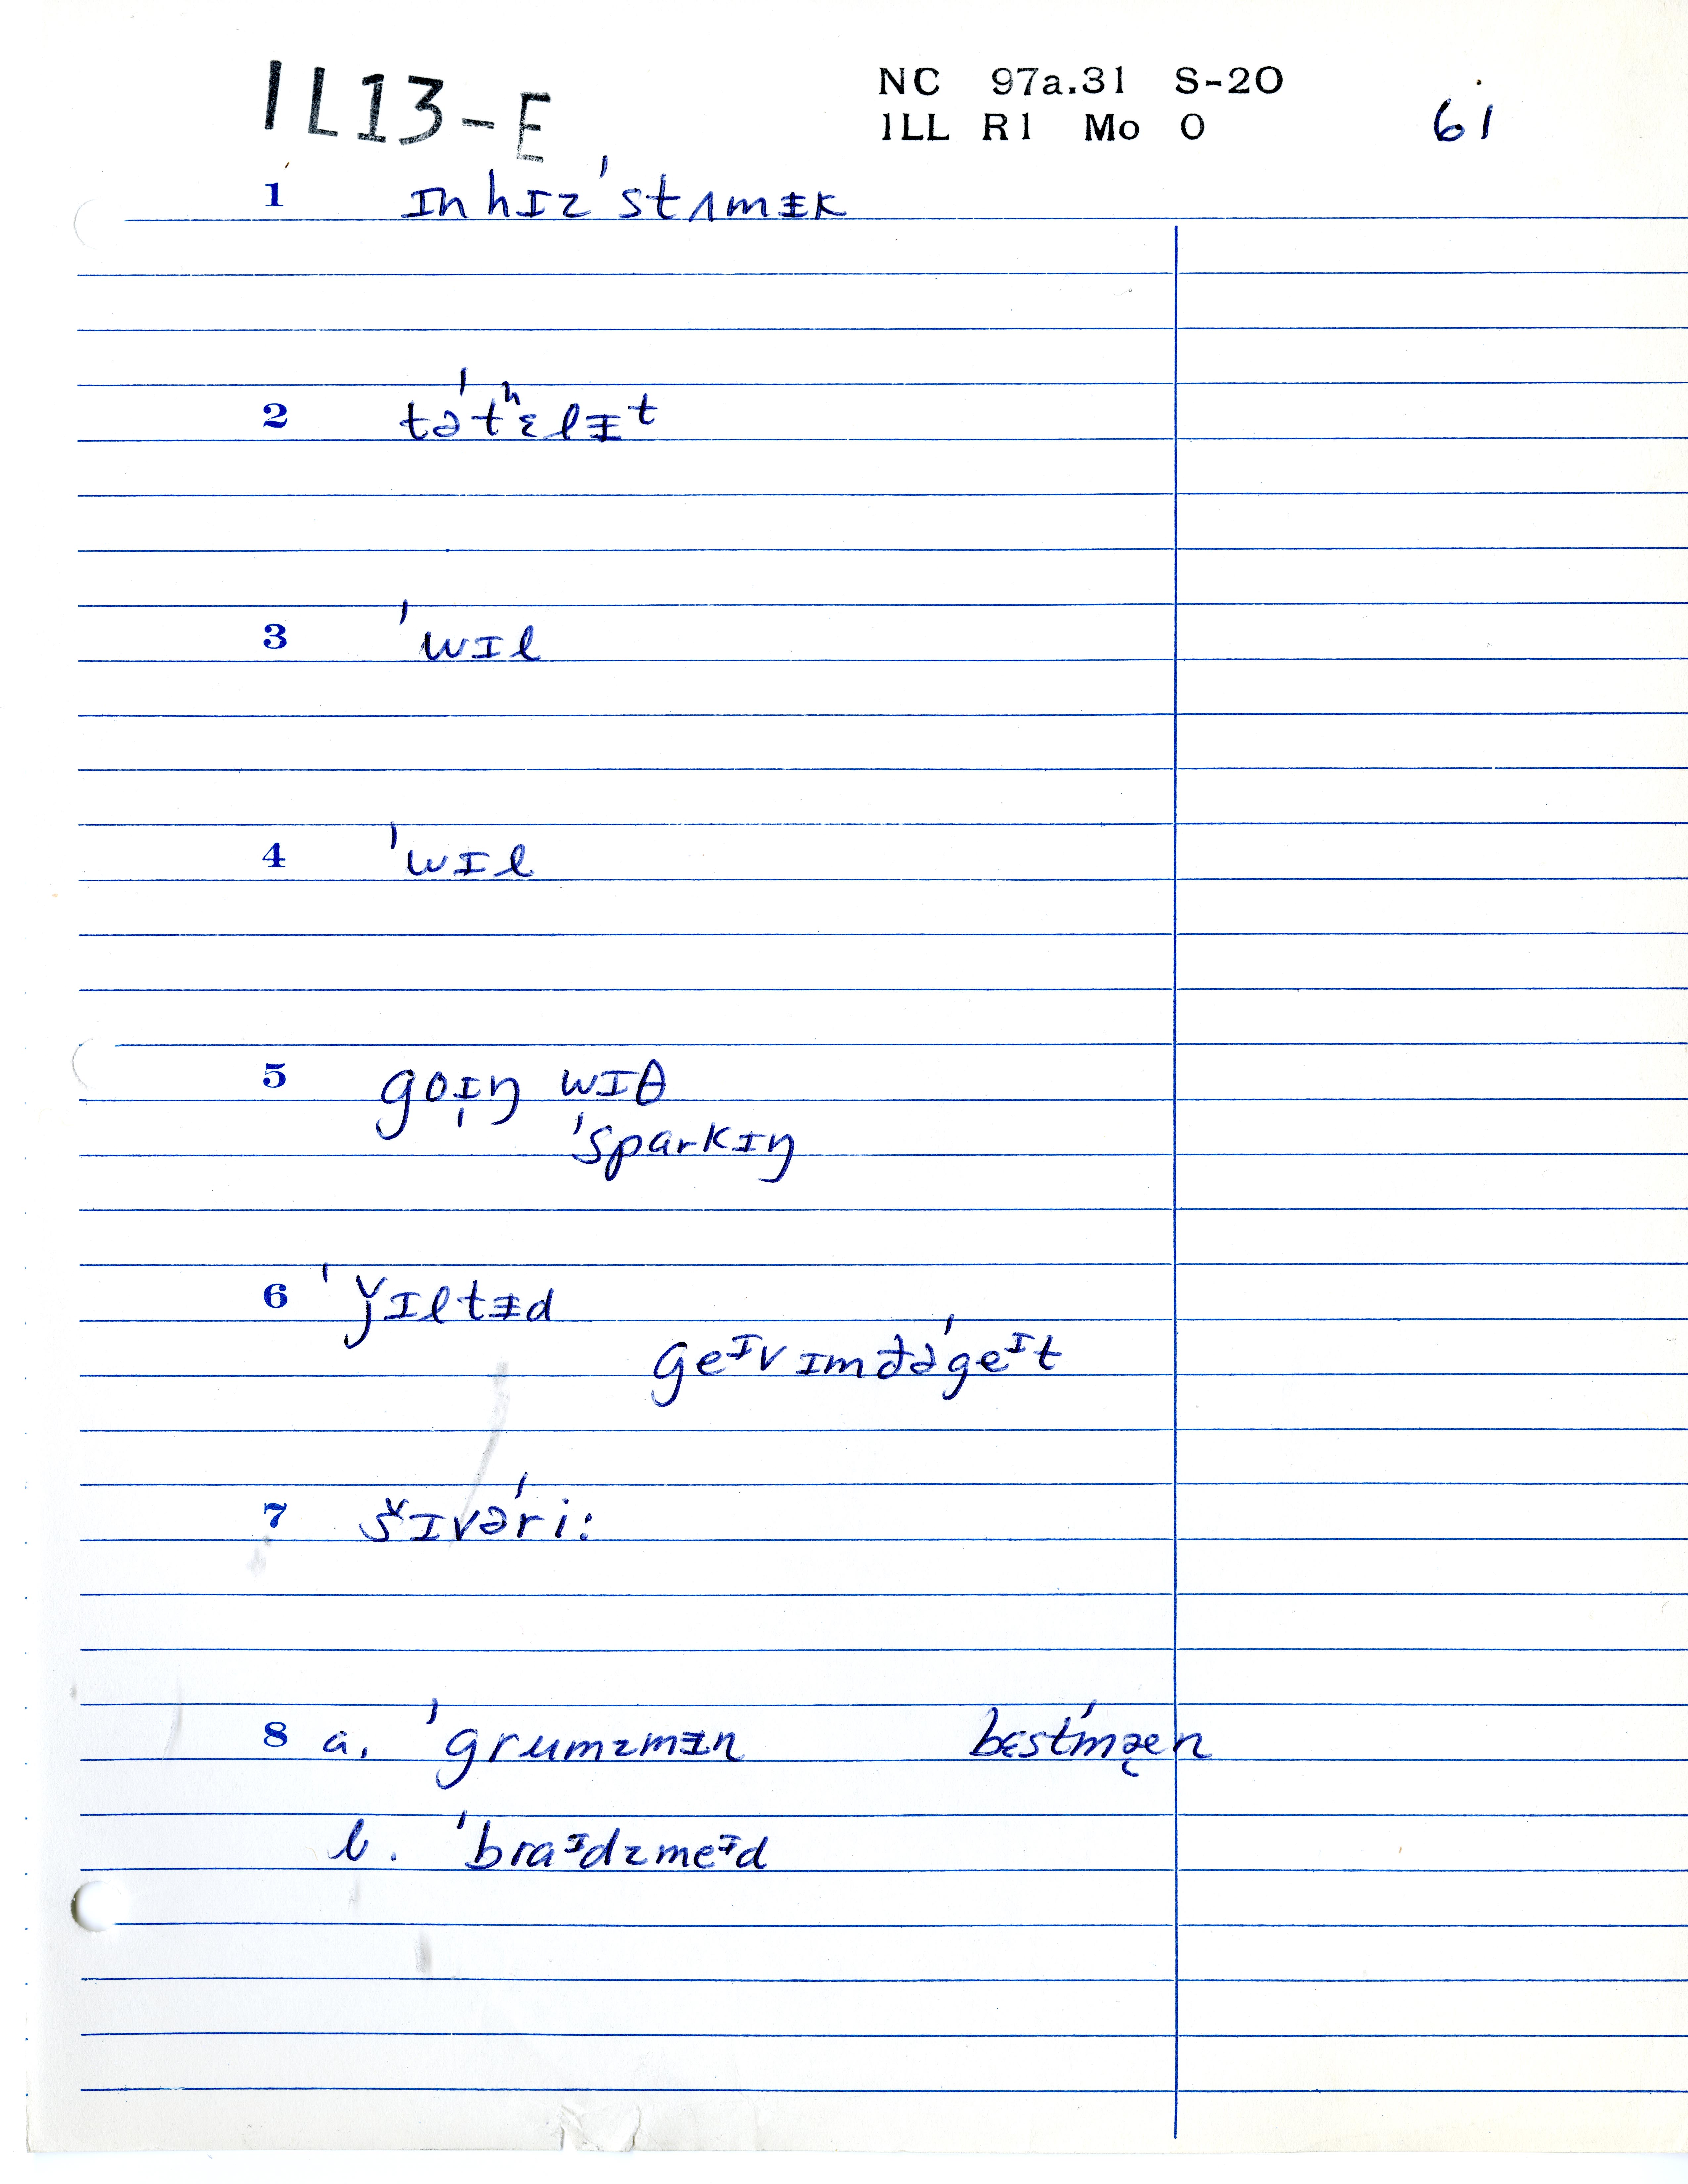 IL13-E
NC 97a.31 S-20
ILL R1 Mo O
61
1 ɪn hɪz ˈstʌmᵻk
2 təˈtʰɛlᵻᵗ
3 ˈwɪl
4 ˈwɪl
5 goɪ̩ŋ wɪθ
ˈsparkɪŋ
6 ˈǰɪltᵻd
geᴵv ɪm ðəˈgeᴵt
7 šɪvəˈri:
8 a. ˈgrumzmᵻn bɛstˈmæ̨n
b. ˈbraᴵdzmeᴵd